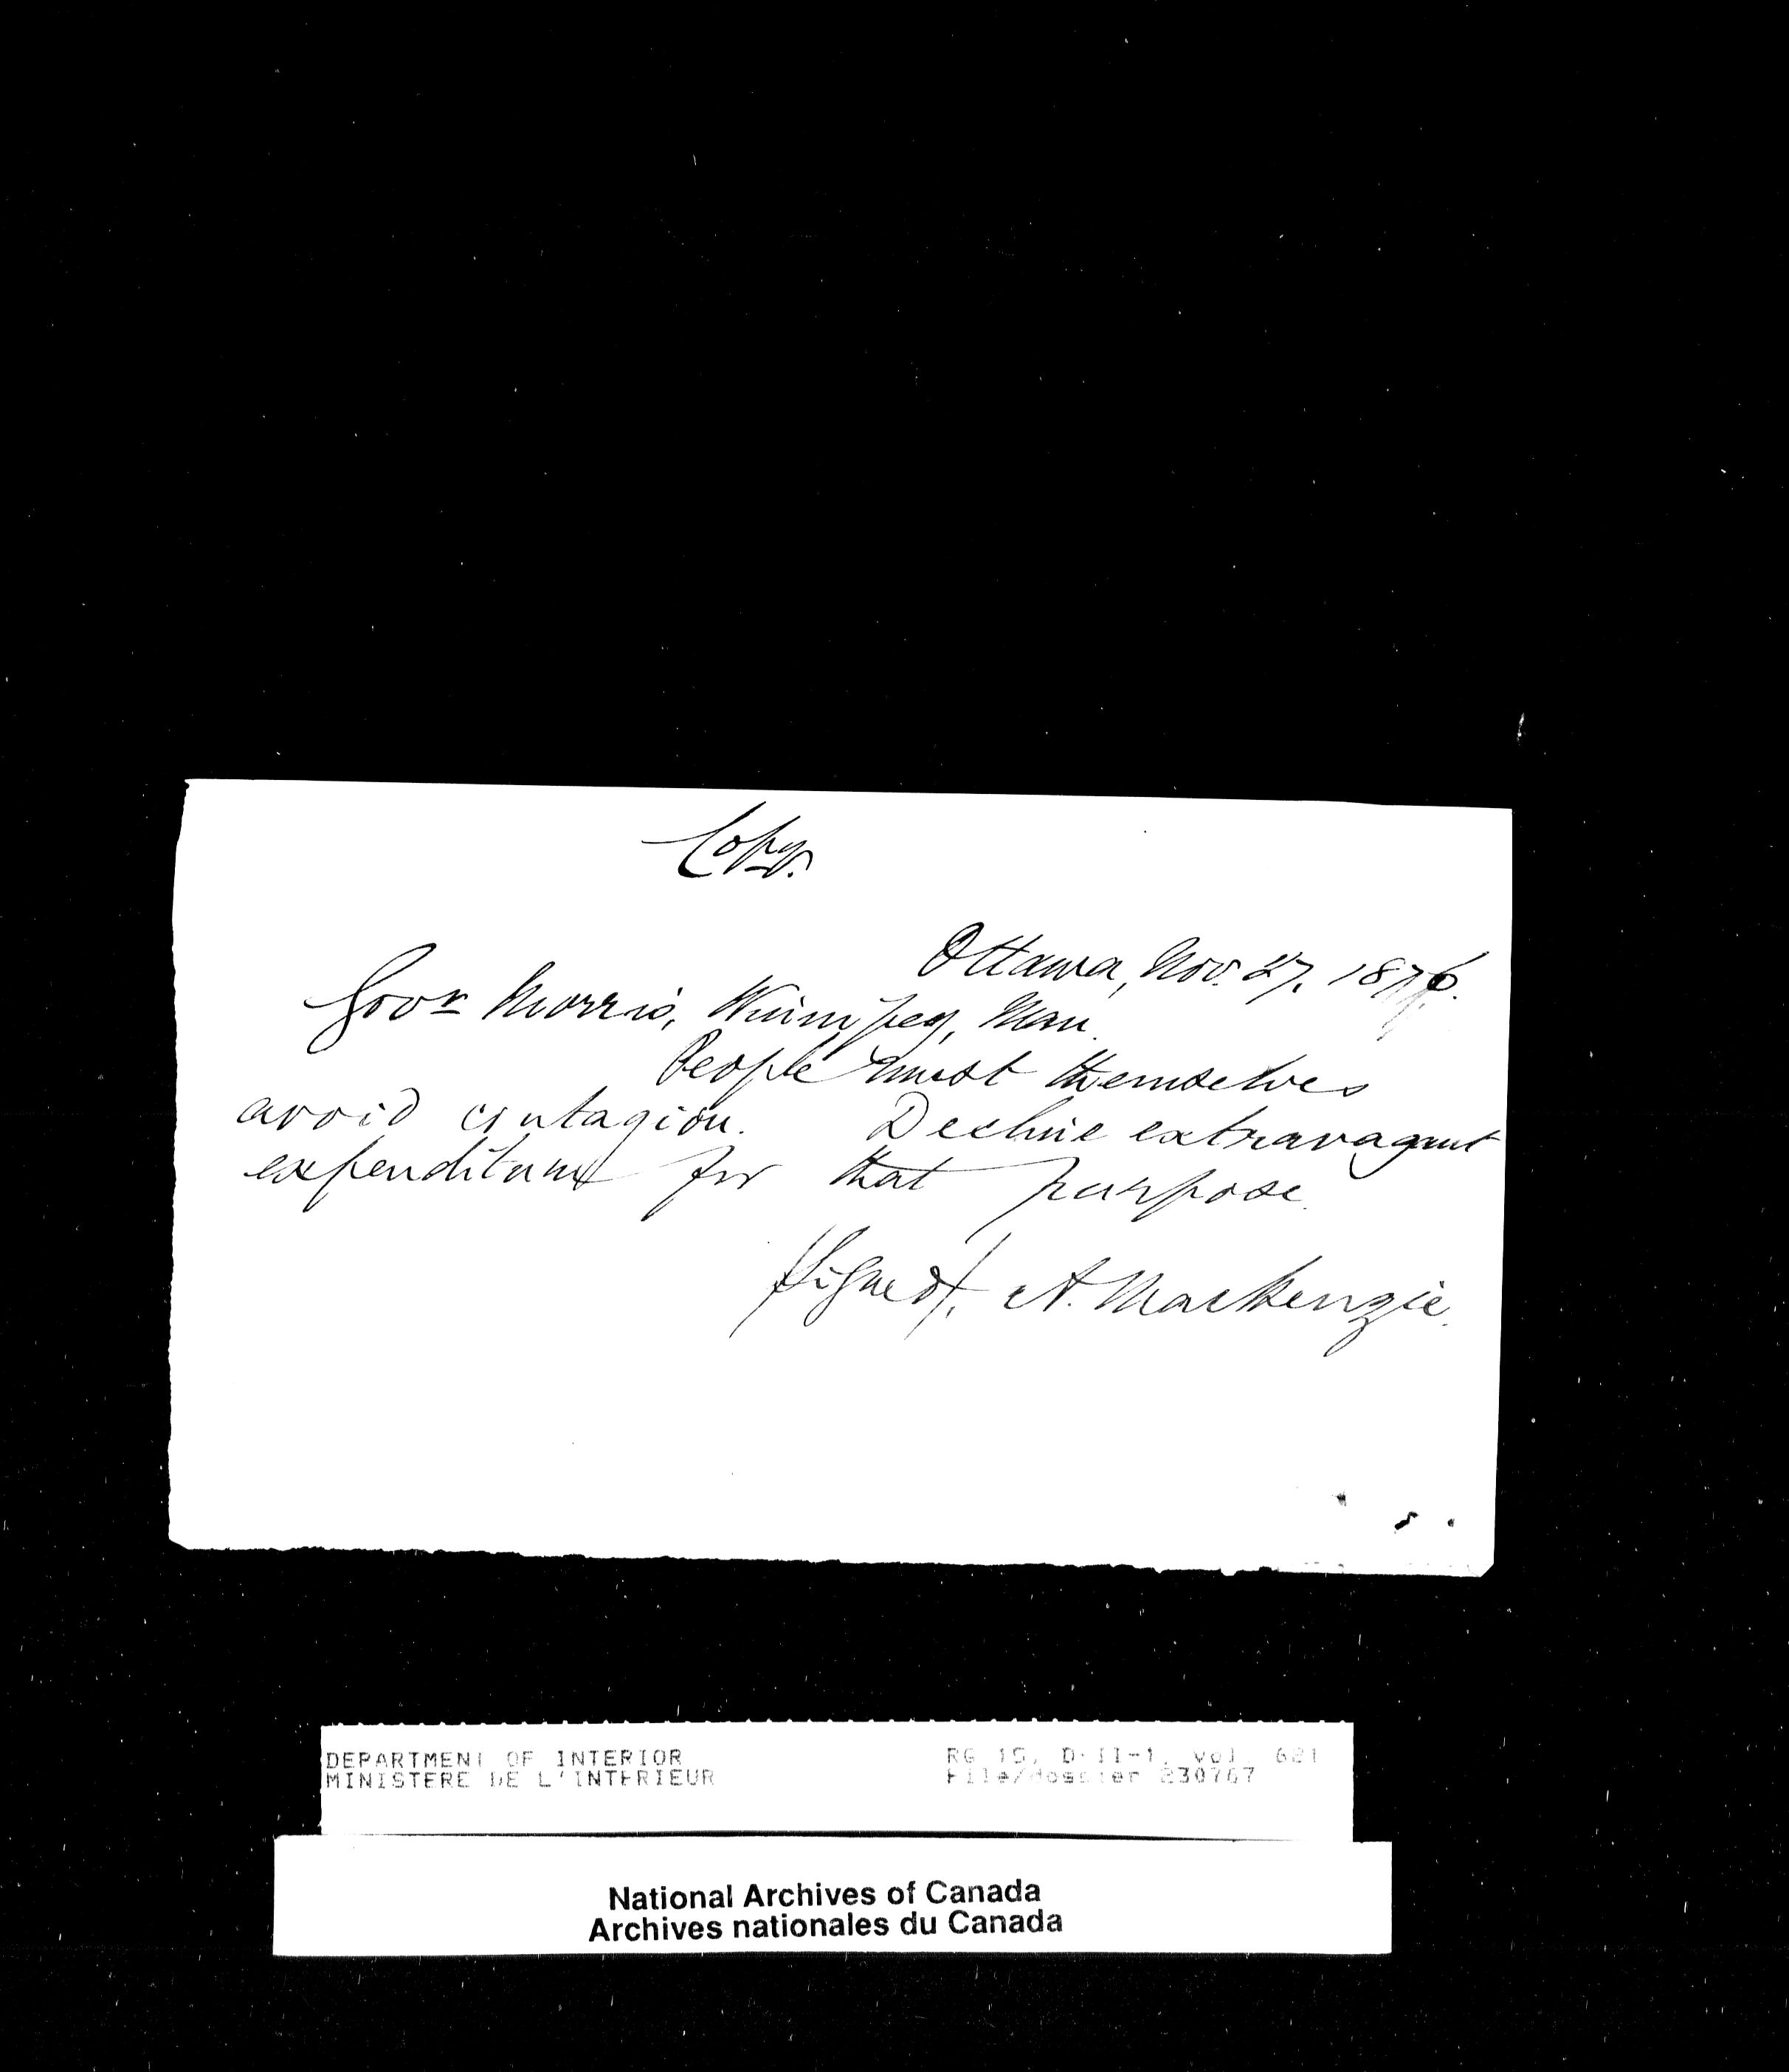 Copy.
Ottawa, Nov. 27, 1876.
Govr Morris, Winnipeg, Man.
People must themselves
avoid contagion. Decline extravagant
expenditure for that purpose.
(Signed), A. Mackenzie.
DEPARTMENT OF INTERIOR
MINISTERE DE L'INTERIEUR
RG 15, D-II-1, vol. 621
File/dossier 230767
National Archives of Canada
Archives nationales du Canada